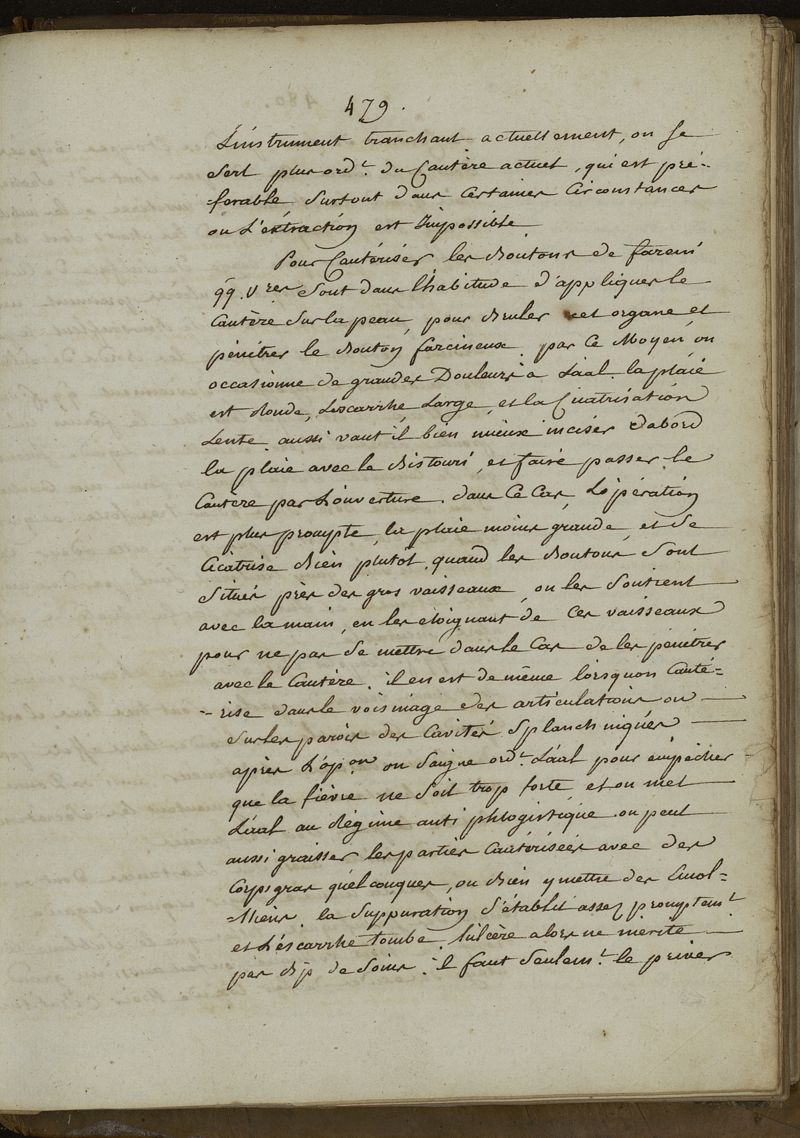 479.
L'instrument tranchant actuellement, on se
sert plus ord.t du Cautère actuel, qui est pré-
-ferable surtout dans certaines Circonstances
ou L'extraction est Impossible
Pour Cautériser les Boutons de farcin
qq. V.res sont dans l'habitude d'appliquer le
Cautère sur la peau, pour Bruler cet organe et
pénétrer le Bouton farcineux. par Ce Moyen, on
occasionne de grandes Douleurs a L'aal. la plaie
est Ronde, L'escarrhe Large, et la Cicatrisation
Lente. aussi vaut il bien mieux inciser d'abord
la plaie avec le Bistouri, et faire passer le
Cautère par L'ouverture. dans Ce Cas, L'opération
est plus prompte, la plaie moins grande, et se
Cicatrise Bien plutôt. quand les Boutons sont
Situés près des gros vaisseaux, on les soutient
avec la main, en les eloignant de Ces vaisseaux
pour ne pas se mettre dans le Cas de les penétrer
avec le Cautère. il en est de même lorsqu'on Cauté=
=rise dans le voisinage des articulations ou
sur les parois des Cavités splanchniques
après L'op.on on Saigne ord.t L'aal pour empêcher
que la fièvre ne soit trop forte, et on met
L'aal au Régime anti phlogistique. on peut
aussi graisser les parties Cautérisées avec des
Corps gras quelconques, ou Bien y mettre des Emol=
=liens. la Suppuration S'établit assez promptem.t
et L'éscarrhe tombe. l'ulcère alors ne merite
pas de soins. il faut Seulem.t le priver